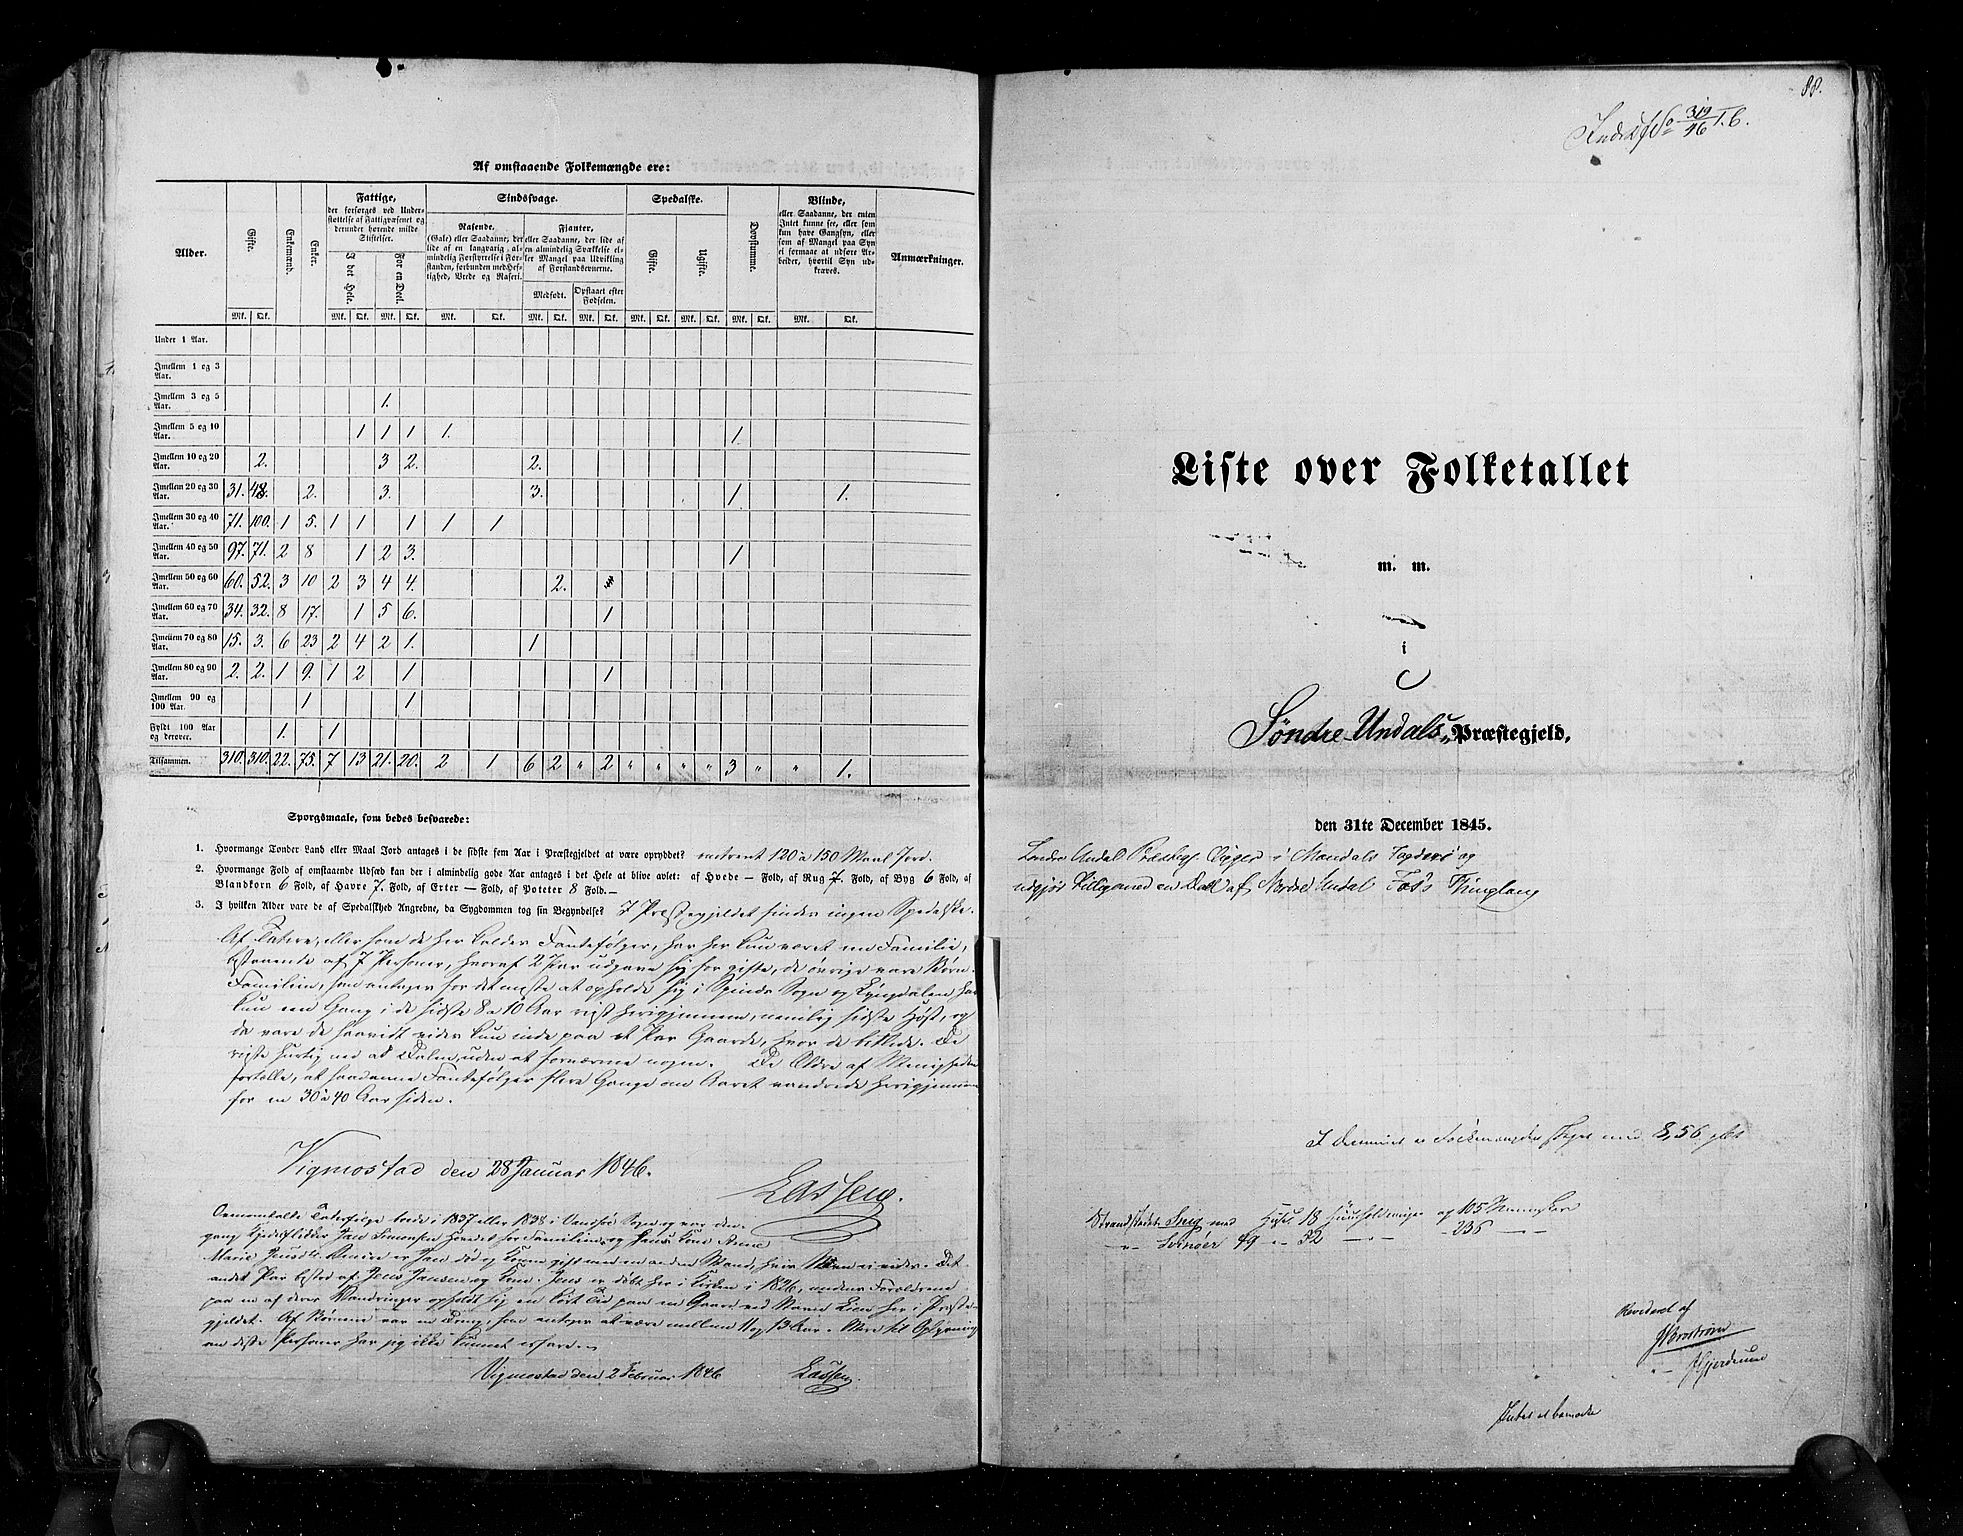 Af omstaaende Folkemængde ere:
Alder. Gifte. Enkemænd. Enker. Fattige, der forsørges ved Understøttelse af Fattigvæsenet og derunder hørende milde Stiftelser. Sindssvage. Spedalske. Døvstumme. Blinde, eller Saadanne, der enten Intet kunne see, eller som kun have Gangsyn, eller som af Mangel paa Syn ei formaae at udføre Arbeider, hvortil Syn udkræves. Anmærkninger.
I det Hele. For en Deel. Rasende. (Gale) eller Saadanne, der lide af en langvarig, almindelig Forstyrrelse i Forstanden, forbunden med Heftighed, Vrede og Raseri. Fianter, eller Saadanne, der lide af en almindelig Svækkelse eller Mangel paa Udvikling af Forstandsevnerne. Gifte. Ugifte.
Medfødt. Opstaaet efter Fødselen.
Mk. Qk. Mk. Qk. Mk. Qk. Mk. Qk. Mk. Qk. Mk. Qk. Mk. Qk. Mk. Qk. Mk. Qk. Mk. Qk.
Under 1 Aar.
Imellem 1 og 3 Aar.
Imellem 3 og 5 Aar. 1.
Imellem 5 og 10 Aar. 1 1 1 1. 1.
Imellem 10 og 20 Aar. 2. 3 2. 2.
Imellem 20 og 30 Aar. 31. 48. 2. 3. 3. 1 1.
Imellem 30 og 40 Aar. 71. 100. 1 5. 1 1 1 1 1
Imellem 40 og 50 Aar. 97. 71. 2 8 1 2 3. 1
Imellem 50 og 60 Aar. 60. 52. 3 10 2 3 4 4. 2.
Imellem 60 og 70 Aar. 34. 32. 8 17. 1 5 6. 1
Imellem 70 og 80 Aar. 15. 3. 6 23 2 4 2 1. 1
Imellem 80 og 90 Aar. 2. 2. 1 9. 1 2 1 1
Imellem 90 og 100 Aar. 1 1
Fyldt 100 Aar og derover. 1. 1
Tilsammen. 310. 310. 22. 75. 7 13 21. 20. 2 1 6 2 " 2 " " " " 3 " " 1.
Spørgsmaale, som bedes besvarede:
1. Hvormange Tønder Land eller Maal Jord antages i de sidste fem Aar i Præstegjeldet at være opryddet? omtrent 120 à 150 Maal Jord.
2. Hvormange Fold af omstaaende Udsæd kan der i almindelig gode Aar antages i det Hele at blive avlet: af Hvede — Fold, af Rug 7. Fold, af Byg 6 Fold, af
Blandkorn 6 Fold, af Havre 7. Fold, af Erter — Fold, af Poteter 8 Fold. —
3. I hvilken Alder vare de af Spedalskhed Angrebne, da Sygdommen tog sin Begyndelse? I Præstegjeldet findes ingen Spedalske.
Af Tatere, eller som de her kaldes Fantefølger, har her kun været en Familie,
bestaaende af 7 Personer, hvoraf 2 Par udgave sig for gifte, de øvrige vare Børn.
Familien, som antages for det meste at opholde sig i Spinds Sogn og Lyngdalen har
kun een Gang i de sidste 8 a 10 Aar reist herigjennem, nemlig sidste Høst, og
da vare de saavidt vides kun inde paa et Par Gaarde, hvor de bettlede. De
reiste hurtig ned ad Dalen, uden at fornærme nogen. De Ældre af Menigheden
fortælle, at saadanne Fantefølger flere Gange om Aaret vandrede herigjennem
for en 30 à 40 Aar siden.
Vigmostad den 28 Januar 1846.
Lassen.
Ovenomtalte Taterfølge boede i 1837 eller 1838 i Vandsø Sogn og var den
gang Kjedelflikker Jan Simonsen Hovedet for Familien, og hans Kone Anne
Marie
andet Par bestod af Jens Jansen og Kone. Jens er døbt her i Kirken i 1826, medens Forældrene
paa en af deres Vandringer opholdt sig en kort Tid paa en Gaard ved Kirken her i Præste-
gjeldet. Af Børnene var en Dreng, som antoges at være mellem 11 og 13 Aar. Mere til Oplysning
om disse Personer har jeg ikke kunnet erfare. —
Vigmostad den 2 Februar 1846 Lassen.
88.
319/46
Liste over Folketallet
m. m.
i
Søndre-Undals Præstegjeld,
den 31te December 1845.
Søndre Undal Præstegj. ligger i Mandals Fogderi og
udgjør tilligemed en Deel af Nordre Undal Foss Thinglaug
I Decenniet er Folkemængden steget med 8,56 pCt
Strandstedet Snig med Huse 18 Huusholdninger og 105 Mennesker
" Svinøer 49 " 52 — " — 236 — " —
Revideret af